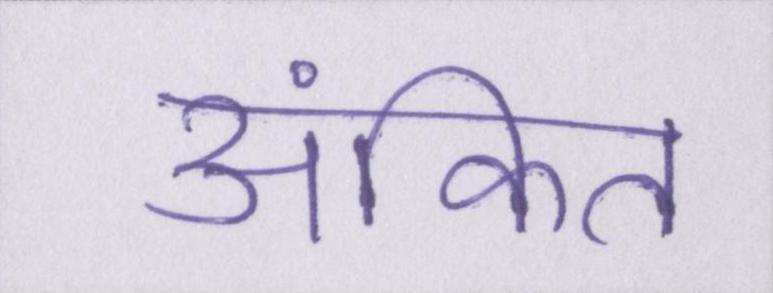 अंकित